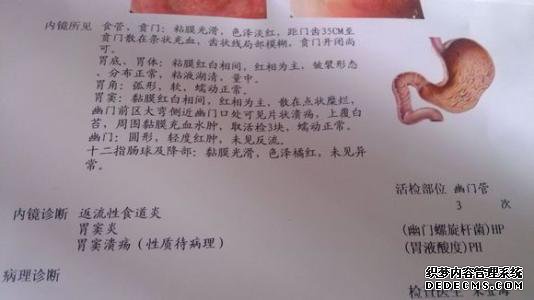 内镜所见 食管，贲门：粘膜光滑，色泽淡红，距门齿35CM至
贲门散在条状充血，齿状线局部模糊，贲门开闭尚
可。
胃底、胃体：粘膜红白相间，红相为主，皱襞形态
、分布正常，粘液湖清，量中。
胃角：弧形，软，蠕动正常。
胃窦：黏膜红白相间，红相为主，散在点状糜烂，
幽门前区大弯侧近幽门口处可见片状溃疡，上覆白
苔，周围黏膜充血水肿，取活检3块，蠕动正常。
幽门：圆形，轻度红肿，未见反流。
十二指肠球及降部：黏膜光滑，色泽橘红，未见异
常。
活检部位 幽门管
3 次
内镜诊断 返流性食道炎
胃窦炎
胃窦溃疡（性质待病理）
(幽门螺旋杆菌)HP
(胃液酸度)PH
病理诊断
检查医生
织梦内容管理系统
DEDECMS.COM